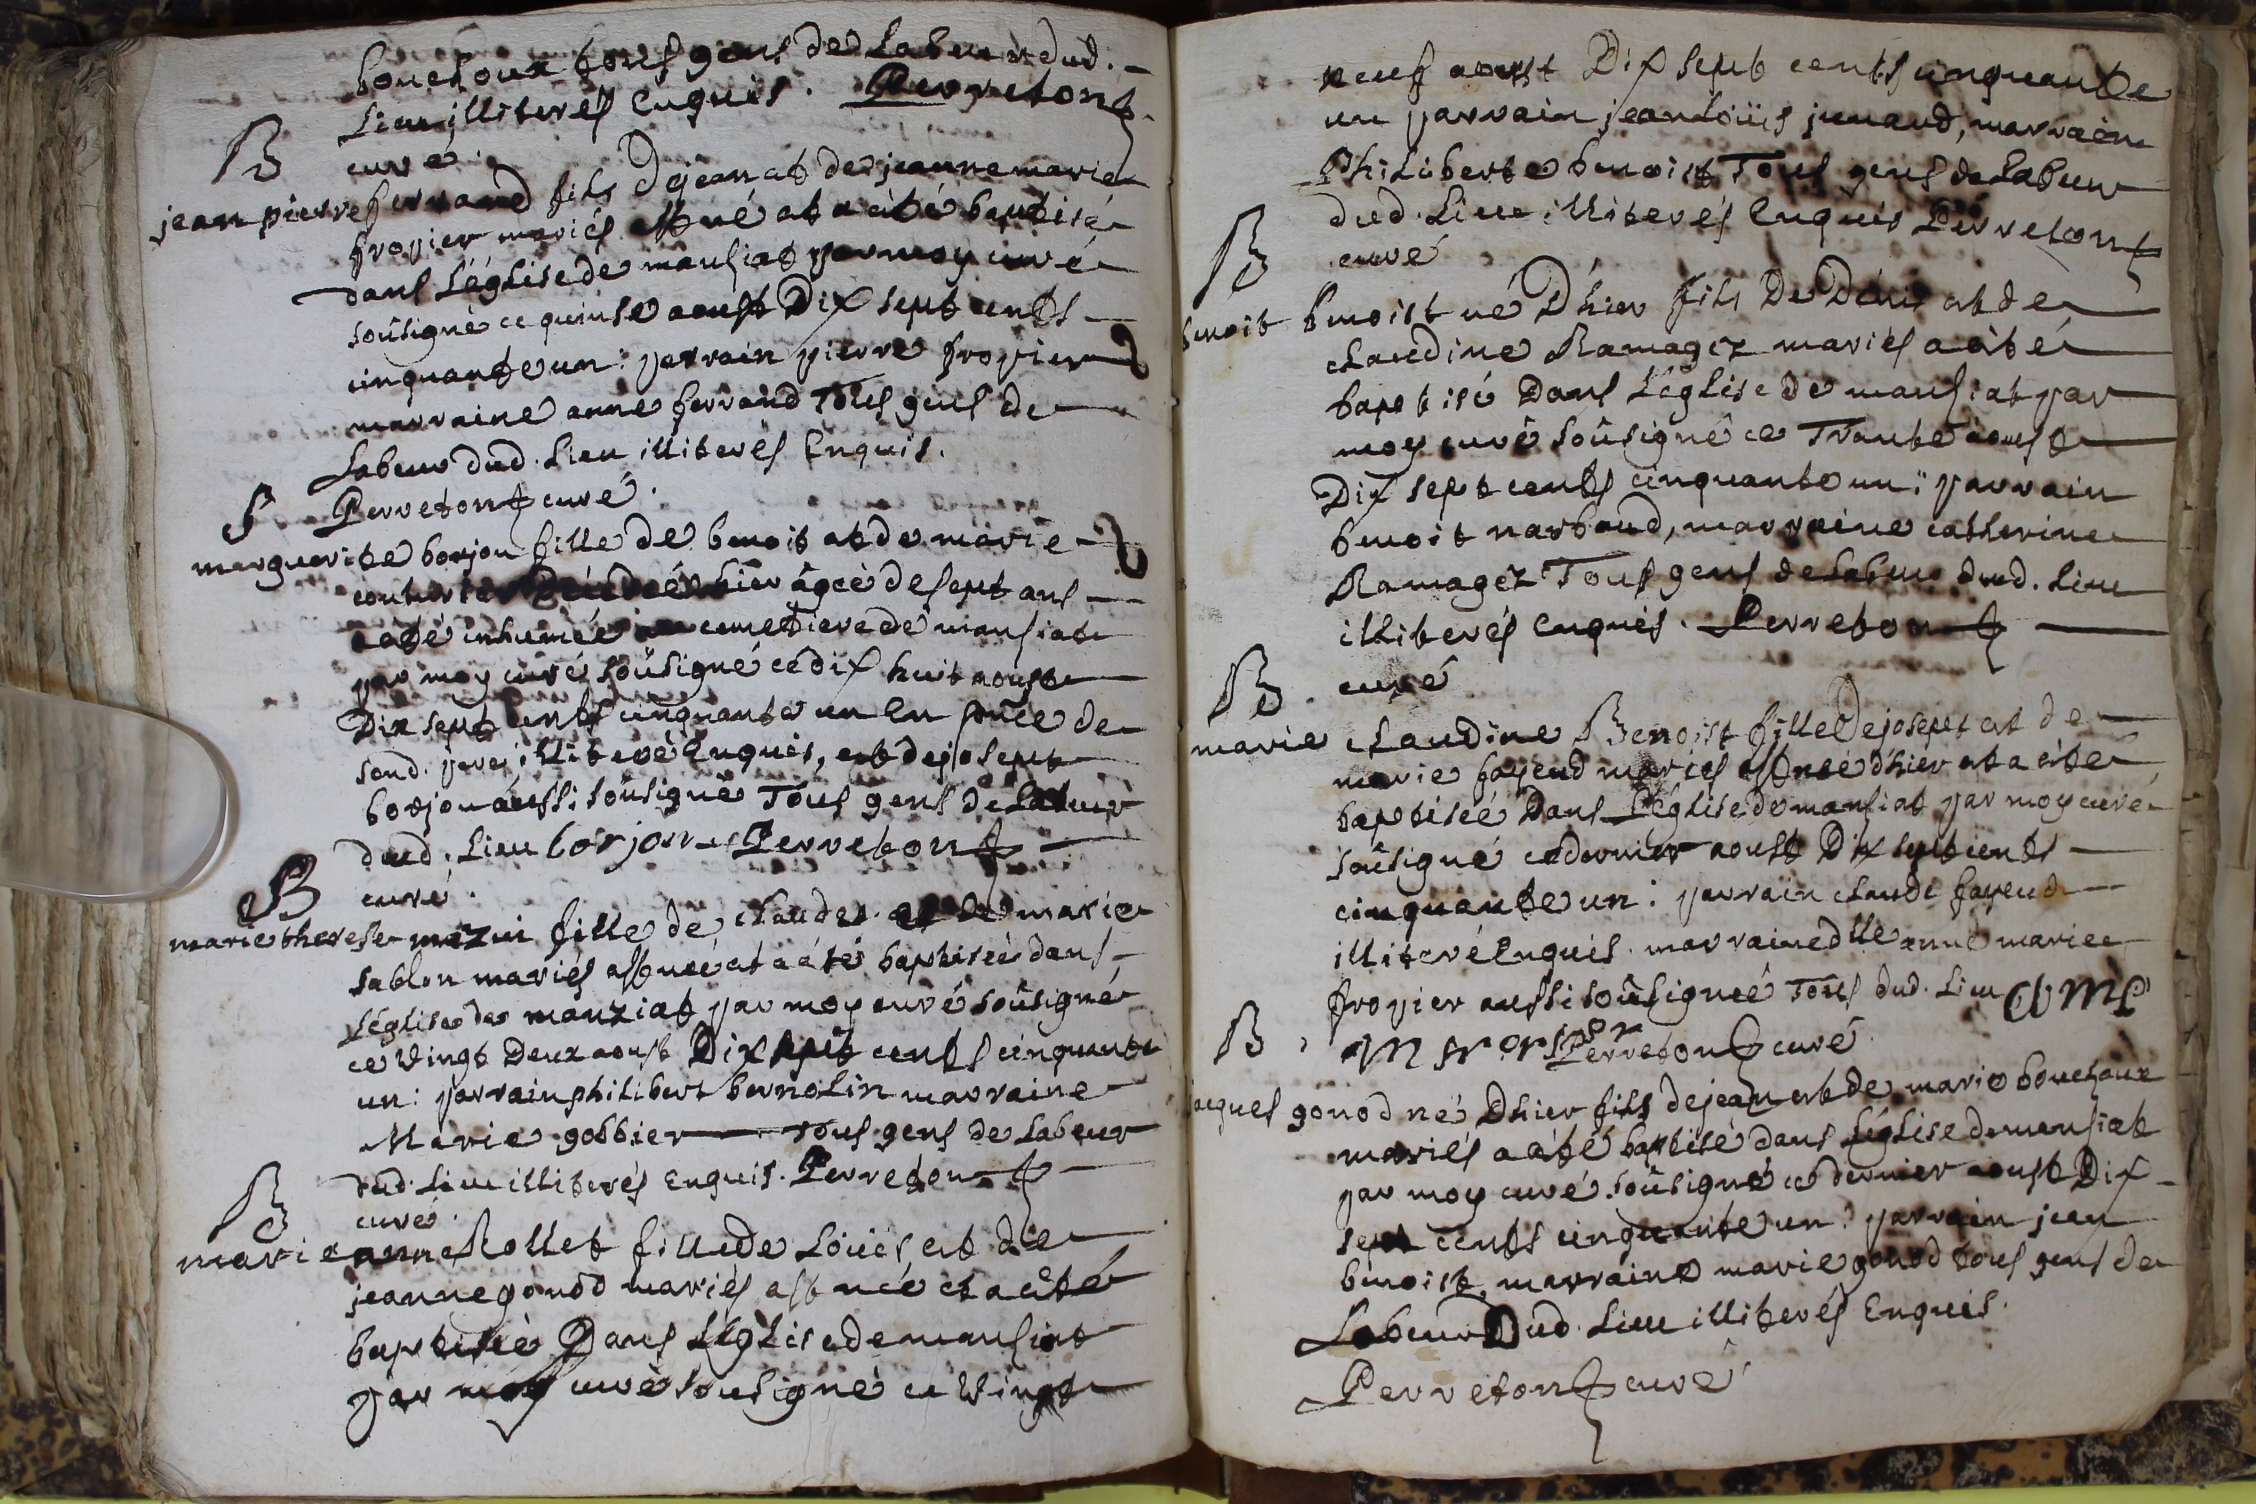 bouchoux tous gens de Labeur dud.
Lieu illiterés Enquis. Perreton
curé.
B
jean pierre ferrand fils de jean et de jeanne marie
fropier mariés est né et a été baptisé
dans L'église de mansiat par moy curé
soûsigné ce quinse aoust Dix sept cents
cinquante un: parrain pierre fropier
marraine anne ferrand Tous gens de
Labeur dud. Lieu illiterés Enquis.
Perreton curé.
S
marguerite borjon fille de benoit et de marie
hier âgée de sept ans
a été inhumée cimetiere de mansiat
par moy curé soûsigné ce dix huit aoust
Dix sept cents cinquante un En pñce de
send. pere illiteré Enquis, et de josept
borjon aussi soûsigné Tous gens de Labeur
dud. Lieu borjon Perreton
curé.
B
marie therese mazui fille de claude et de marie
sablon mariés est née et a été baptisée dans
L'église de manziat par moy curé soûsigné
ce Vingt Deux aoust Dix sept cents cinquante
un: parrain philibert bernolin marraine
Marie gobbier Tous gens de Labeur
dud. Lieu illiterés Enquis. Perreton
curé.
B
marie anne Rollet fille de Loüis et de
jeanne gonod mariés est née et a été
baptisée Dans L'église de mansiat
par moy curé soûsigné ce Vingt
neuf aoust Dix sept cents cinquante
un parrain jean Loüis junaud, marraine
Philiberte benoist Tous gens de Labeur
dud. Lieu illiterés Enquis Perreton
curé
B
benoit benoist né D'hier fils De Dénis et de
claudine Ramagez mariés a été
baptisé Dans L'église de mansiat par
moy curé soûsigné ce Trante aoust
Dix sept cents cinquante un: parrain
benoit narbaud, marraine catherine
Ramagéz Tous gens de Labeur dud. Lieu
illiterés Enquis. Perreton
curé
B.
marie claudine Benoist fille De josept et de
marie fayend mariés est née d'hier et a été
baptisée Dans L'église de mansiat par moy curé
soûsigné ce dernier aoust Dix sept cents
cinquante un: parrain claude fayend
illiteré Enquis. marraine dlle anne marie
fropier aussi soûsignée Tous dud. Lieu
Perreton curé.
B.
jacques gonod né D'hier fils de jean et de marie bouchoux
mariés a été baptisé dans L'église de mansiat
par moy curé soûsigné ce dernier aoust Dix
sept cents cinquante un: parrain jean
benoist, marraine marie gonod tous gens de
Labeur Dud. Lieu illiterés Enquis.
Perreton curé